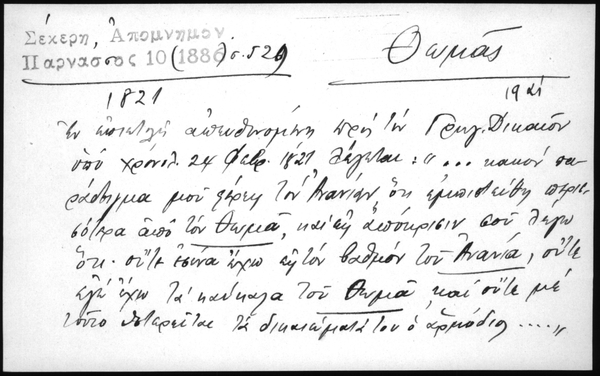 Σέκερη, Ἀπομνημον.
Παρνασσος 10 (1886) σ. 529
Θωμᾶς
1821
19ος αἰ
Ἐν ἐπιστολῇ ἀπευθυνομένῃ πρὸς τὸν Γρηγ. Δικαῖον
ὑπὸ χρονολ. 24 Φεβρ. 1821 λέγεται: « ... κακὸν πα-
ράδειγμα μοῦ φέρεις τὸν Ἀνανίαν, ὅτι ἐμπιστεύθη περισ-
σότερα ἀπὸ τὸν Θωμᾶ, καὶ εἰς ἀπόκρισιν σοῦ λέγω
ὅτι οὔτε ἐσένα ἔχω εἰς τὸν βαθμὸν τοῦ Ἀνανία, οὔτε
ἐγὼ ἔχω τὰ τοῦ Θωμᾶ καὶ οὔτε μὲ
τοῦτο ὑστερεῖται τὰ δικαιώματά του ὁ ἁρμόδιος .... »